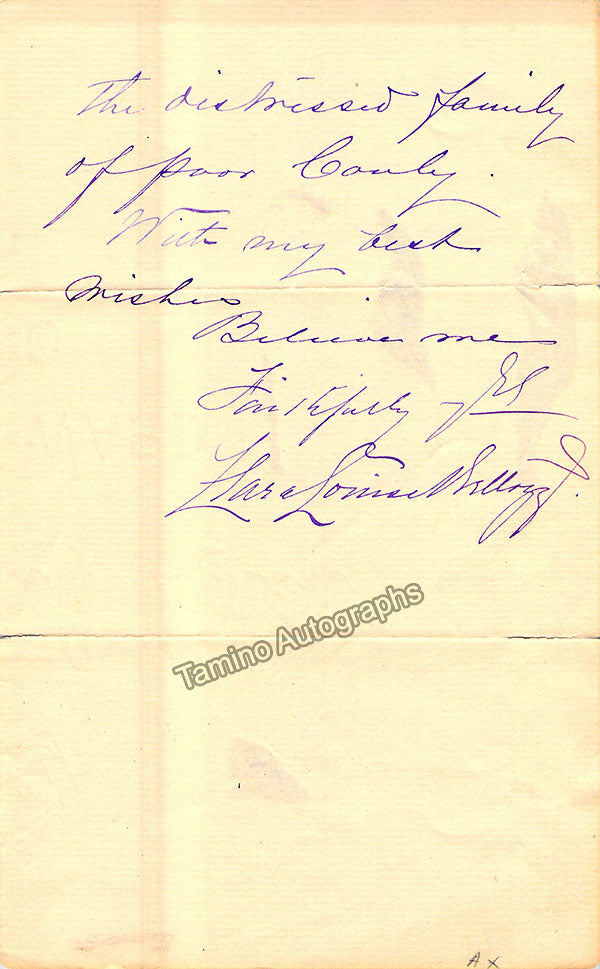 The distressed family
of poor Conly.
With my best
wishes
Believe me
Faithfully yrs
Clara Louise Kellogg.
Tamino Autographs
AX